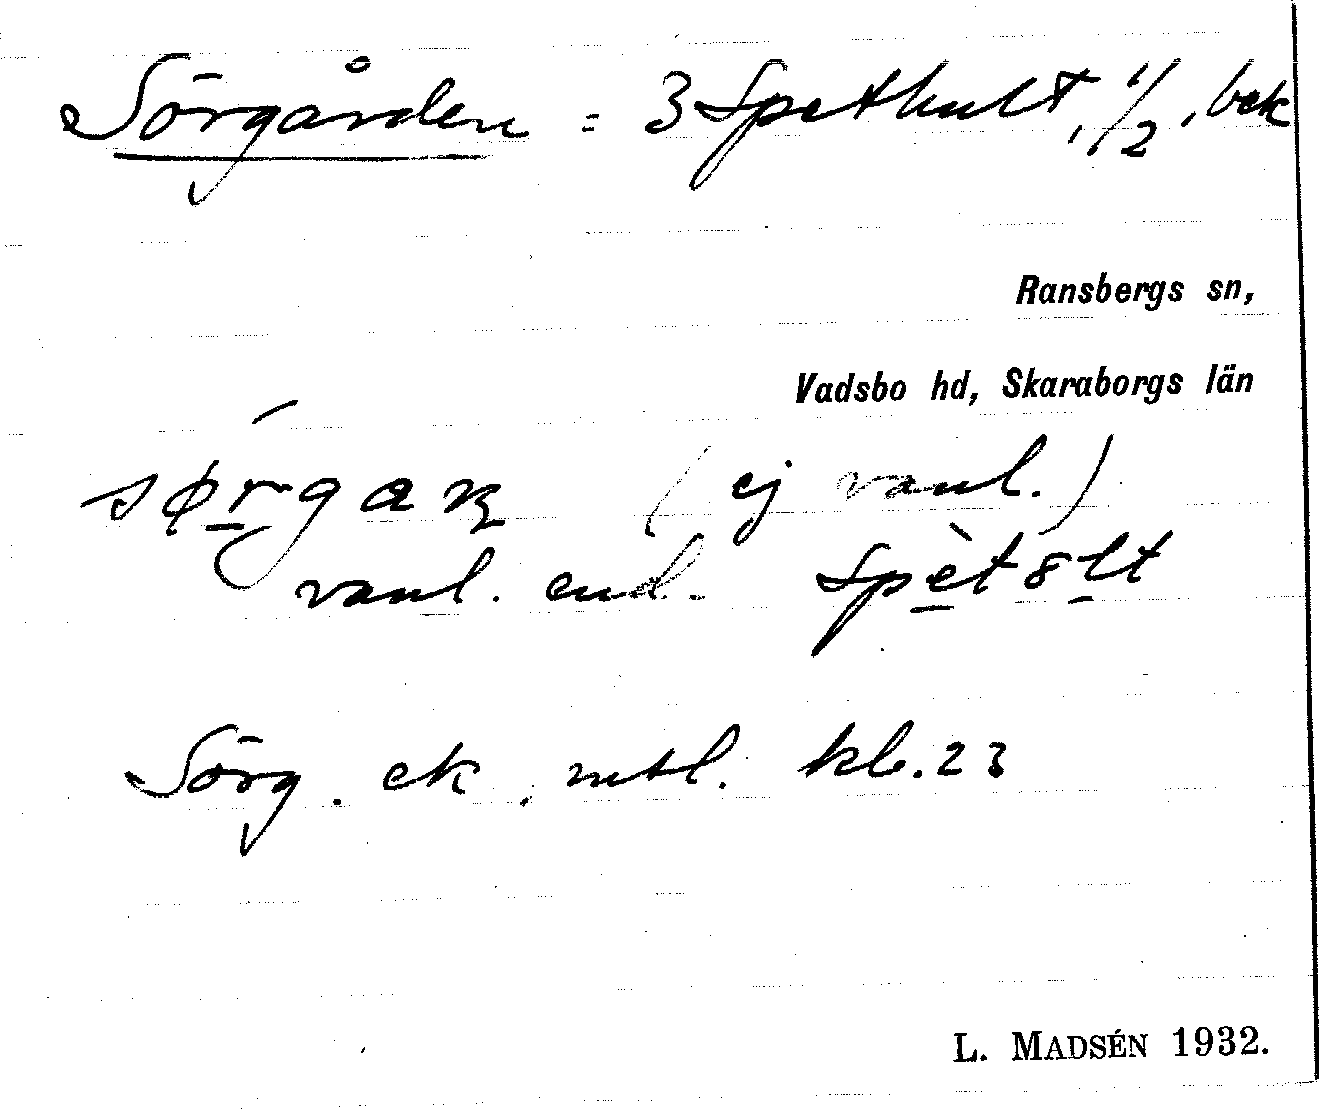 Sörgården = 3 Spethult, 1/2, bek
Ransbergs sn,
Vadsbo hd, Skaraborgs län
(ej vanl.)
vanl. end. spètölt
Sörg. ek. mtl. kb. 23
L. MADSÉN 1932.